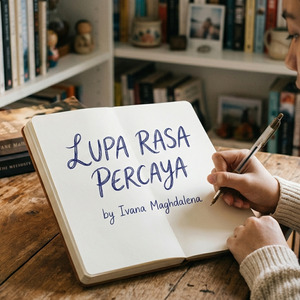 LUPA RASA
PERCAYA
by Ivana Maghdalena